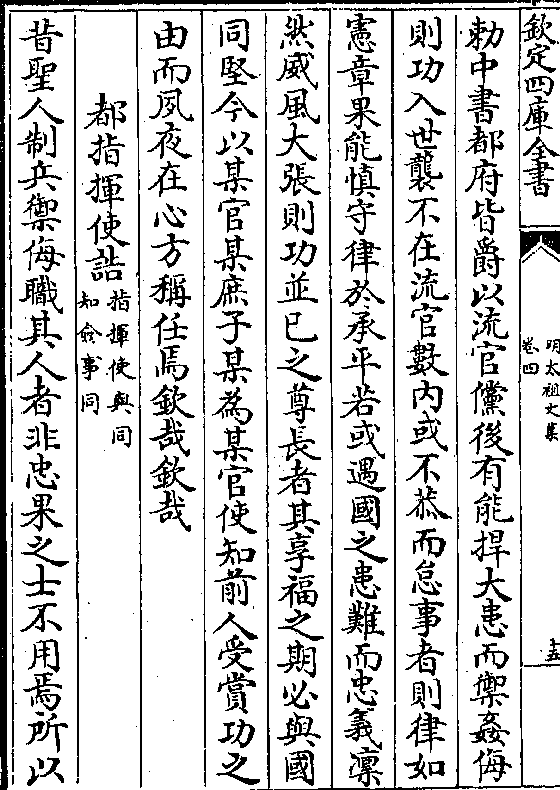 欽定四庫全書
明太祖文集
卷四
十五
勅中書都府皆爵以流官儻後有能捍大患而禦姦侮
則功入世襲不在流官數內或不恭而怠事者則律如
憲章果能慎守律於承平若或遇國之患難而忠義凛
然威風大張則功並已之尊長者其享福之期必與國
同堅今以某官某庶子某為某官使知前人受賞功之
由而夙夜在心方稱任焉欽哉欽哉
都指揮使誥指揮使與同
知僉事同
昔聖人制兵禦侮職其人者非忠果之士不用焉所以